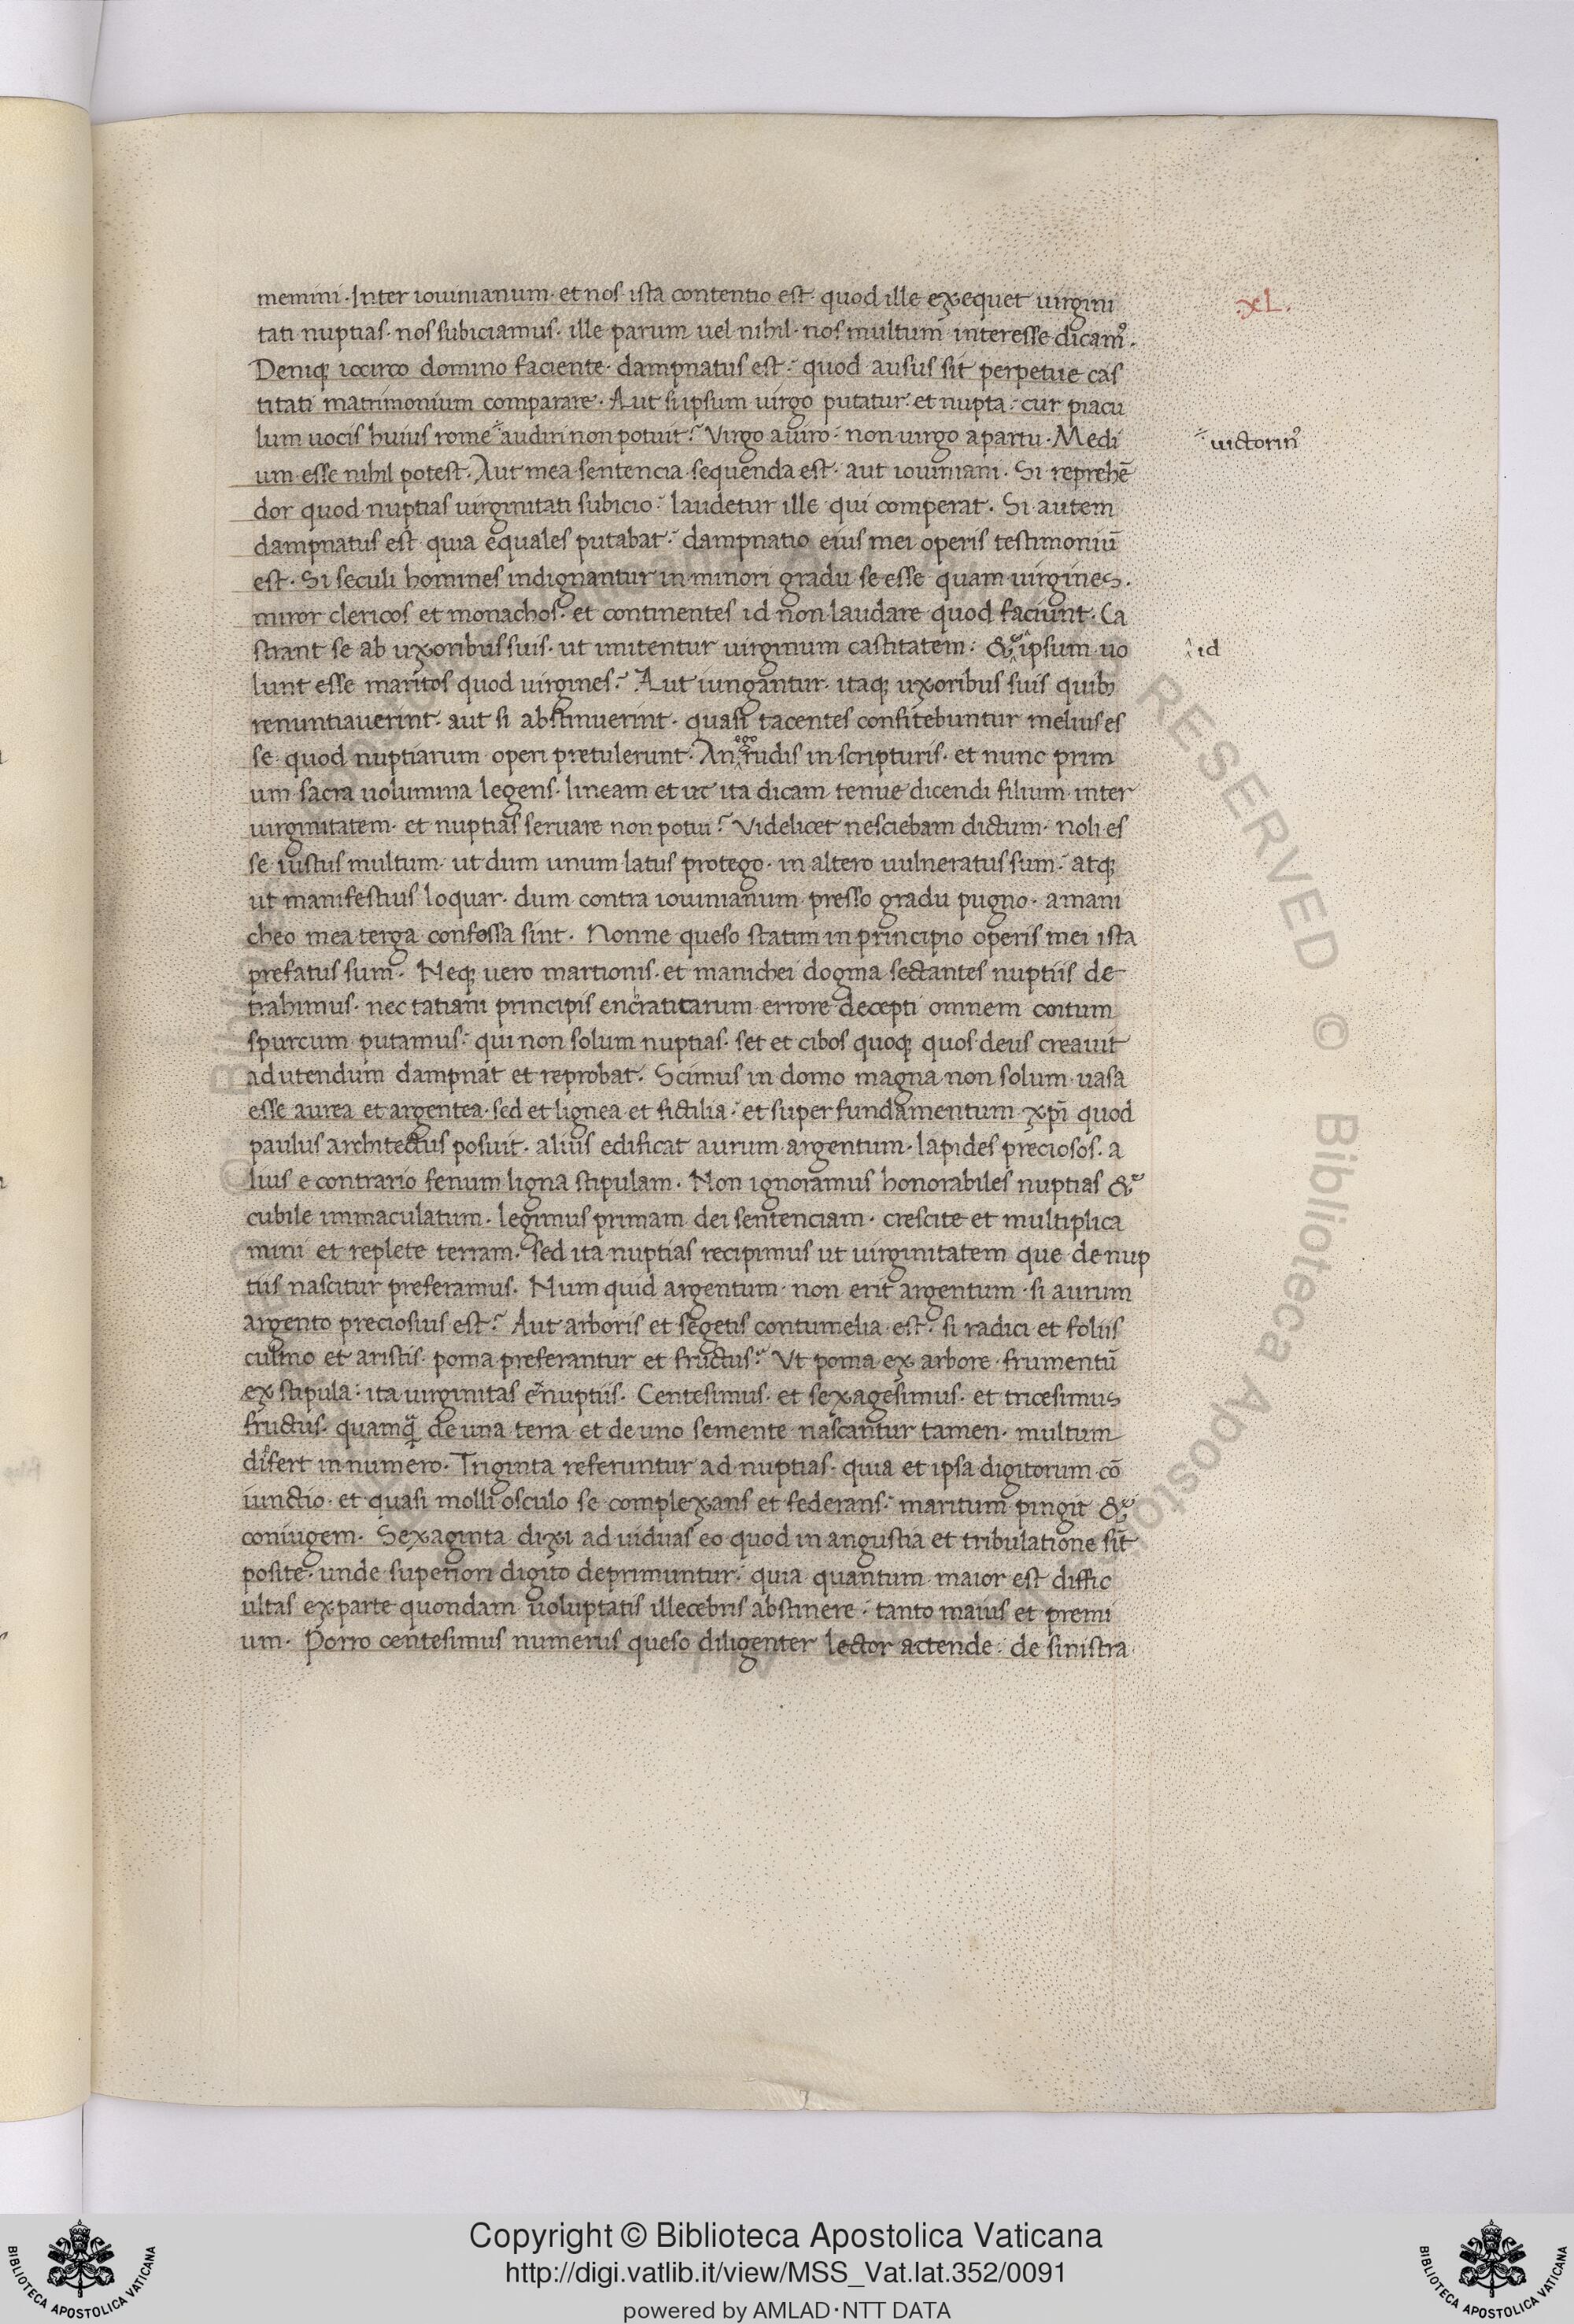 memini · Inter iouinianum · et nos ista contentio est · quod ille exequet uirgini
.xL.
tati nuptias · nos subiciamus · ille parum uel nihil · nos multum interesse dicamꝰ .
Deniqꝫ iccirco domino faciente · dampnatus est : quod ausus sit perpetue cas
titati matrimonium comparare · Aut si ipsum uirgo putatur · et nupta : cur piacu
lum uocis huius rome audiri non potuit ? Virgo a uiro : non uirgo a partu · Medi
uictorinꝰ
um esse nihil potest . Aut mea sentencia sequenda est · aut iouiniani . Si reprehē
dor quod nuptias uirginitati subicio : laudetur ille qui comperat . Si autem
dampnatus est quia equales putabat : dampnatio eius mei operis testimoniū
est . Si seculi homines indignantur in minori gradu se esse quam uirgines .
miror clericos et monachos · et continentes id non laudare quod faciunt · Ca
strant se ab uxoribus suis · ut imitentur uirginum castitatem : & ipsum uo
id
lunt esse maritos quod uirgines ? Aut iungantur · itaqꝫ uxoribus suis quibꝫ
renuntiauerint · aut si abstinuerint · quasi tacentes confitebuntur melius es
se · quod nuptiarum operi pretulerunt · An ego rudis in scripturis · et nunc prim
um sacra uolumina legens · lineam et ut ita dicam tenue dicendi filium inter
uirginitatem · et nuptias seruare non potui ? Videlicet nesciebam dictum · noli es
se iustus multum · ut dum unum latus protego · in altero uulneratus sum : atqꝫ
ut manifestius loquar · dum contra iouinianum presso gradu pugno · a mani
cheo mea terga confossa sint . Nonne queso statim in principio operis mei ista
prefatus sum · Neqꝫ uero martionis · et manichei dogma sectantes nuptiis de
trahimus · nec tatiani principis encratitarum errore decepti omnem coitum
spurcum putamus : qui non solum nuptias · set et cibos quoqꝫ quos deus creauit
ad utendum dampnat et reprobat . Scimus in domo magna non solum uasa
esse aurea et argentea · sed et lignea et fictilia : et super fundamentum xp̄i quod
paulus architectus posuit · alius edificat aurum argentum · lapides preciosos · a
lius e contrario fenum ligna stipulam · Non ignoramus honorabiles nuptias &
cubile immaculatum · legimus primam dei sentenciam · crescite et multiplica
mini et replete terram · sed ita nuptias recipimus ut uirginitatem que de nup
tiis nascitur preferamus . Num quid argentum non erit argentum · si aurum
argento preciosius est ? Aut arboris et segetis contumelia est · si radici et foliis
culmo et aristis · poma preferantur et fructus ? Vt poma ex arbore · frumentū
ex stipula : ita uirginitas e nuptiis . Centesimus · et sexagesimus · et tricesimus
fructus · quamqꝫ de una terra et de uno semente nascantur tamen · multum
difert in numero · Triginta referuntur ad nuptias · quia et ipsa digitorum cō
iunctio · et quasi molli osculo se complexans et federans : maritum pingit &
coniugem . Sexaginta dixi ad uiduas eo quod in angustia et tribulatione sīt
posite · unde superiori digito deprimuntur : quia quantum maior est diffic
ultas ex parte quondam uoluptatis illecebris abstinere · tanto maius et premi
um · Porro centesimus numerus queso diligenter lector actende : de sinistra
RESERVED © Biblioteca Aposto
Copyright © Biblioteca Apostolica Vaticana
http://digi.vatlib.it/view/MSS_Vat.lat.352/0091
powered by AMLAD·NTT DATA
BIBLIOTECA APOSTOLICA VATICANA
BIBLIOTECA APOSTOLICA VATICANA